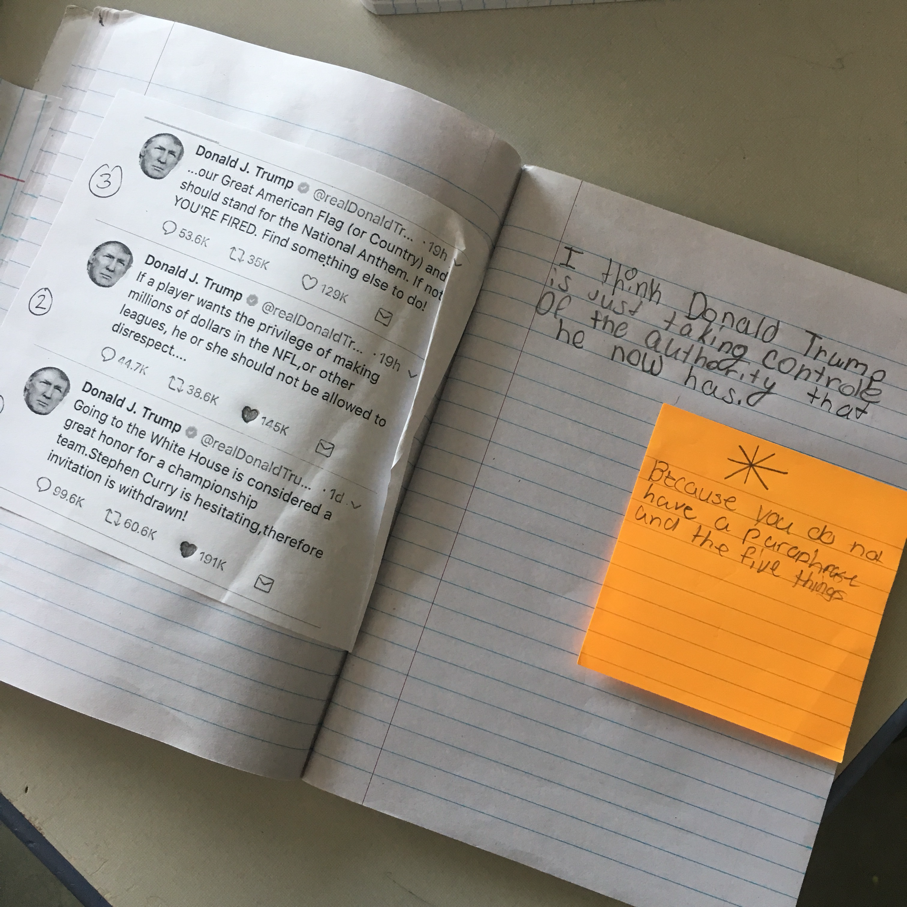 3
Donald J. Trump @realDonaldTr... · 19h
...our Great American Flag (or Country) and
should stand for the National Anthem. If not
YOU'RE FIRED. Find something else to do!
53.6K 35K 129K
2
Donald J. Trump @realDonaldTr... · 19h
If a player wants the privilege of making
millions of dollars in the NFL,or other
leagues, he or she should not be allowed to
disrespect....
44.7K 38.6K 145K
Donald J. Trump @realDonaldTru... · 1d
Going to the White House is considered a
great honor for a championship
team.Stephen Curry is hesitating,therefore
invitation is withdrawn!
99.6K 60.6K 191K
I think Donald Trump
is just taking controle
Of the authority that
he now has.
Because you do not
have a paraphrase
and the five things